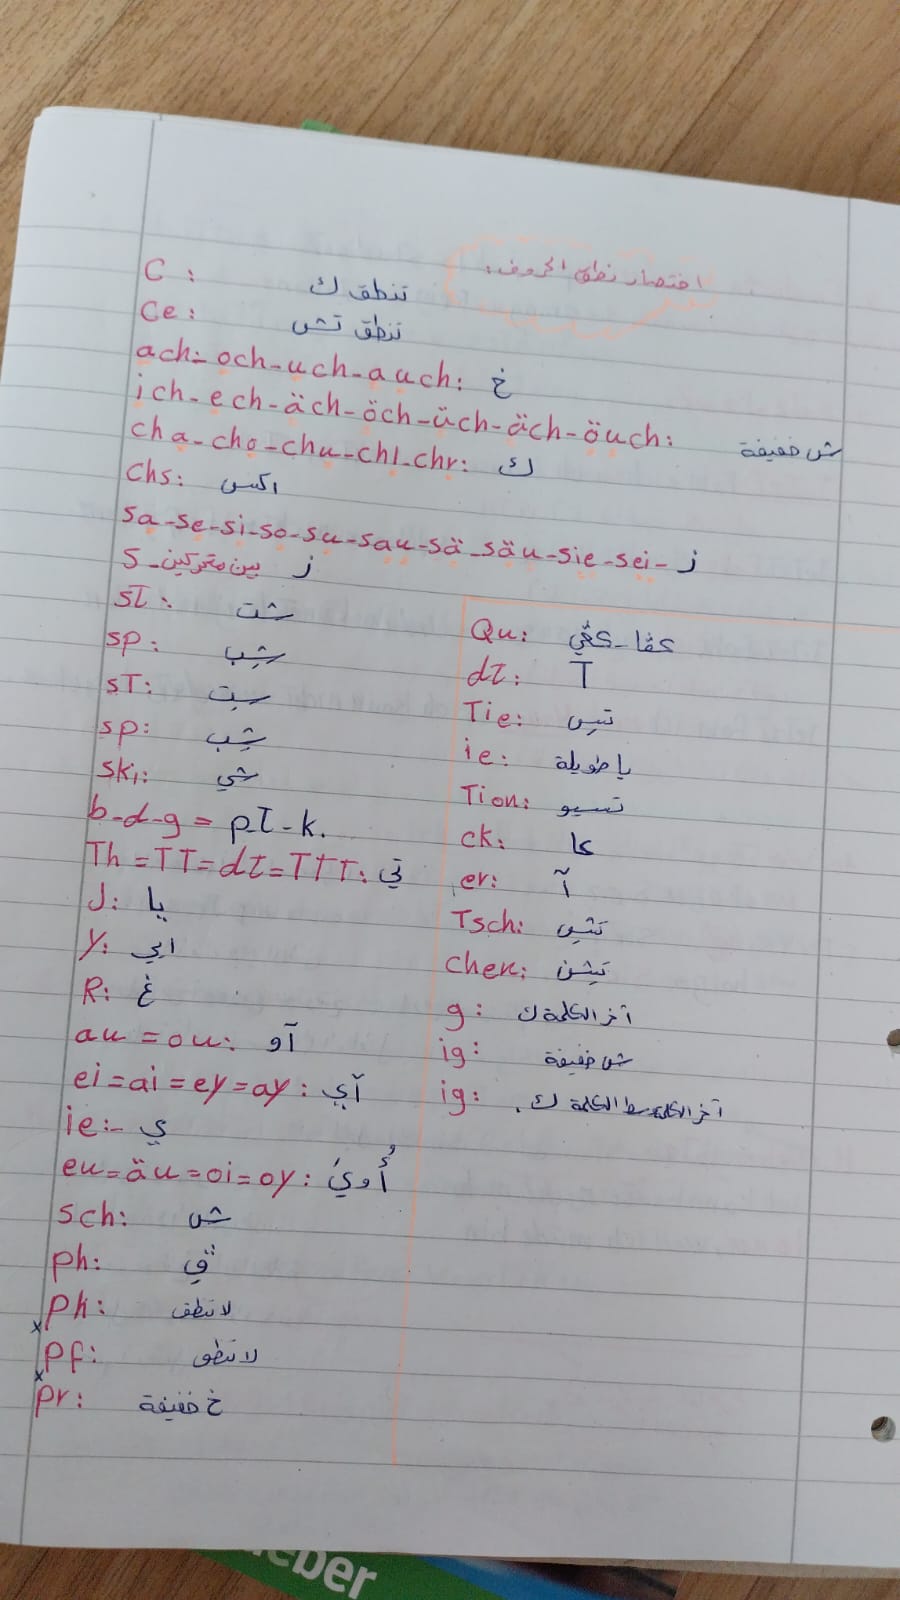 اختصار نطق الحروف:
C : تنطق ك
Ce: تنطق تش
ach- och-uch-auch: خ
ich-ech-äch-öch-üch-äch-öuch: ش خفيفة
cha-cho-chu-chl-chr: ك
Chs: اكس
sa-se-si-so-su-sau-sä-säu-sie-sei- ز
S- بين متحركين ز
st : شت
sp : شب
sT: ست
sp: شب
ski: شي
b-d-g = p-t-k.
Th =TT=dt=TTT: تي
J: يا
Y: ايي
R: غ
au =ou: آو
ei=ai=ey=ay: آي
ie:- ي
eu=äu=oi=oy: أوي
sch: ش
ph: ڤ
ph: لا تنطق
pf: لا تنطق
pr: خ خفيفة
Qu: كفا-كفي
dt: T
Tie: تس
ie: يا طويلة
Tion: تسيو
ck: كا
er: آ
Tsch: تش
chen: تشن
g: آخر الكلمة ك
ig: ش خفيفة
ig: آخر الكلمة ك.
eber